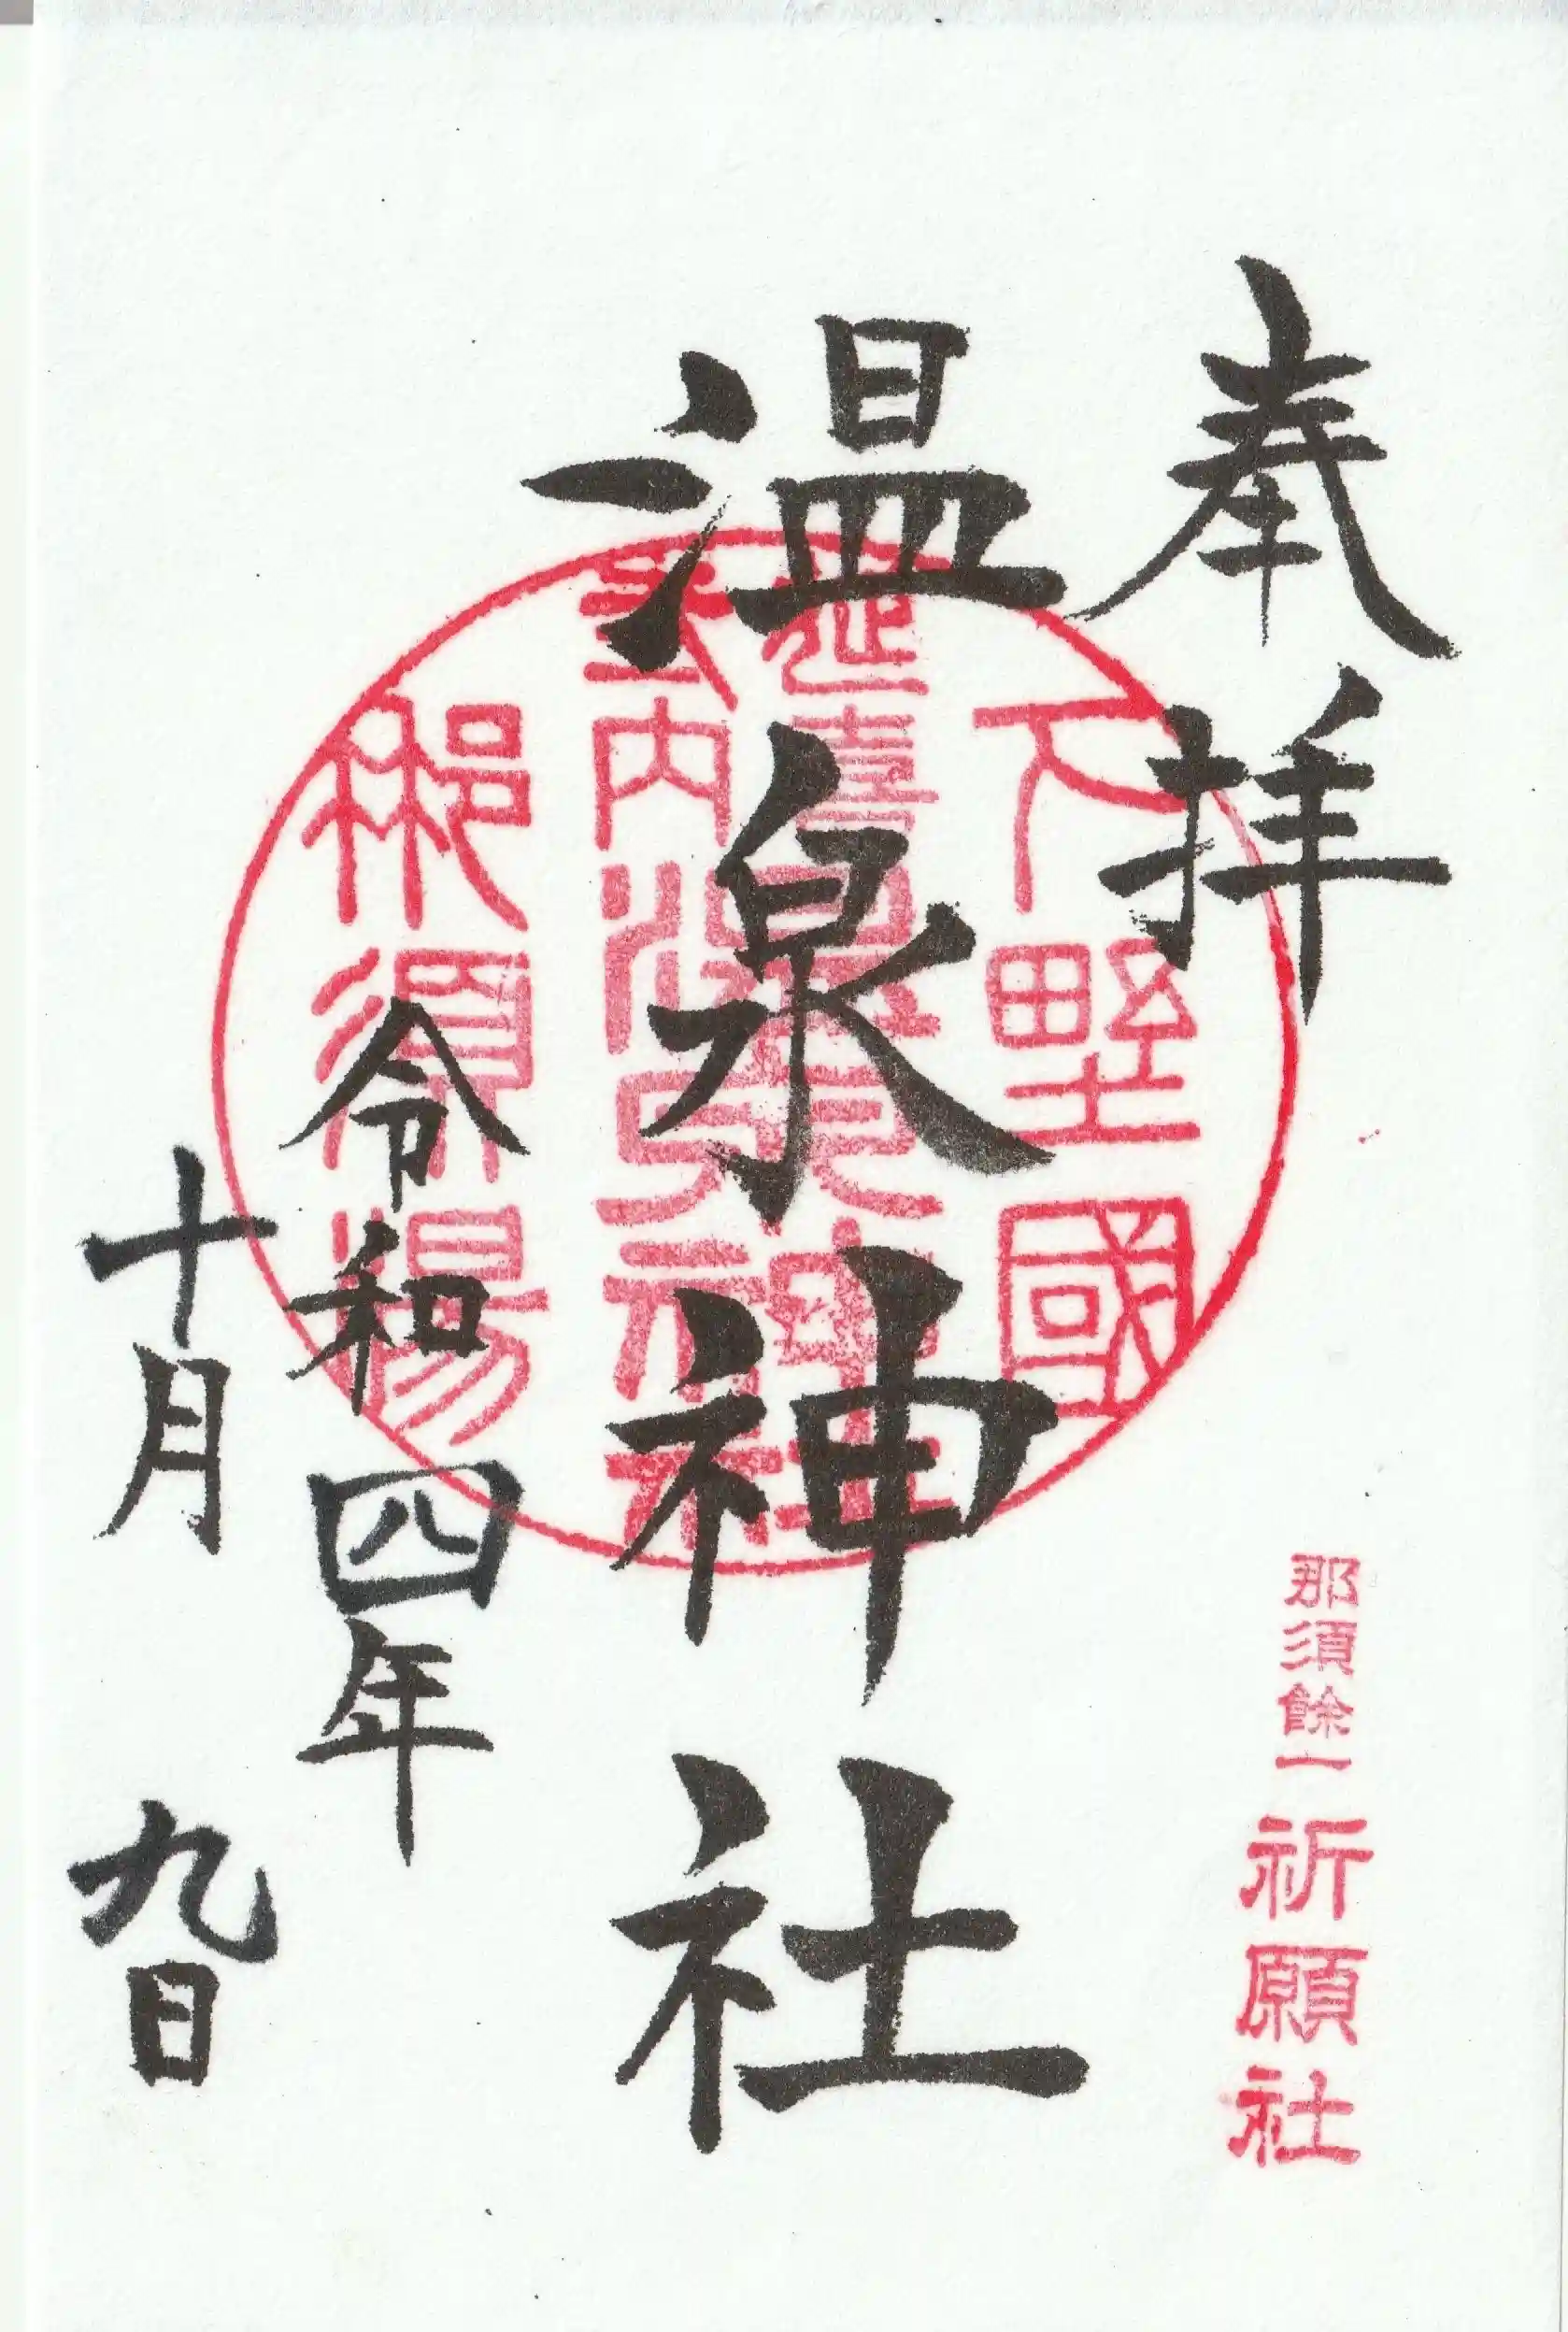 奉拝
那須餘一
祈願社
下野國
延喜式内
温泉神社
那須湯
温泉神社
令和四年
十月九日